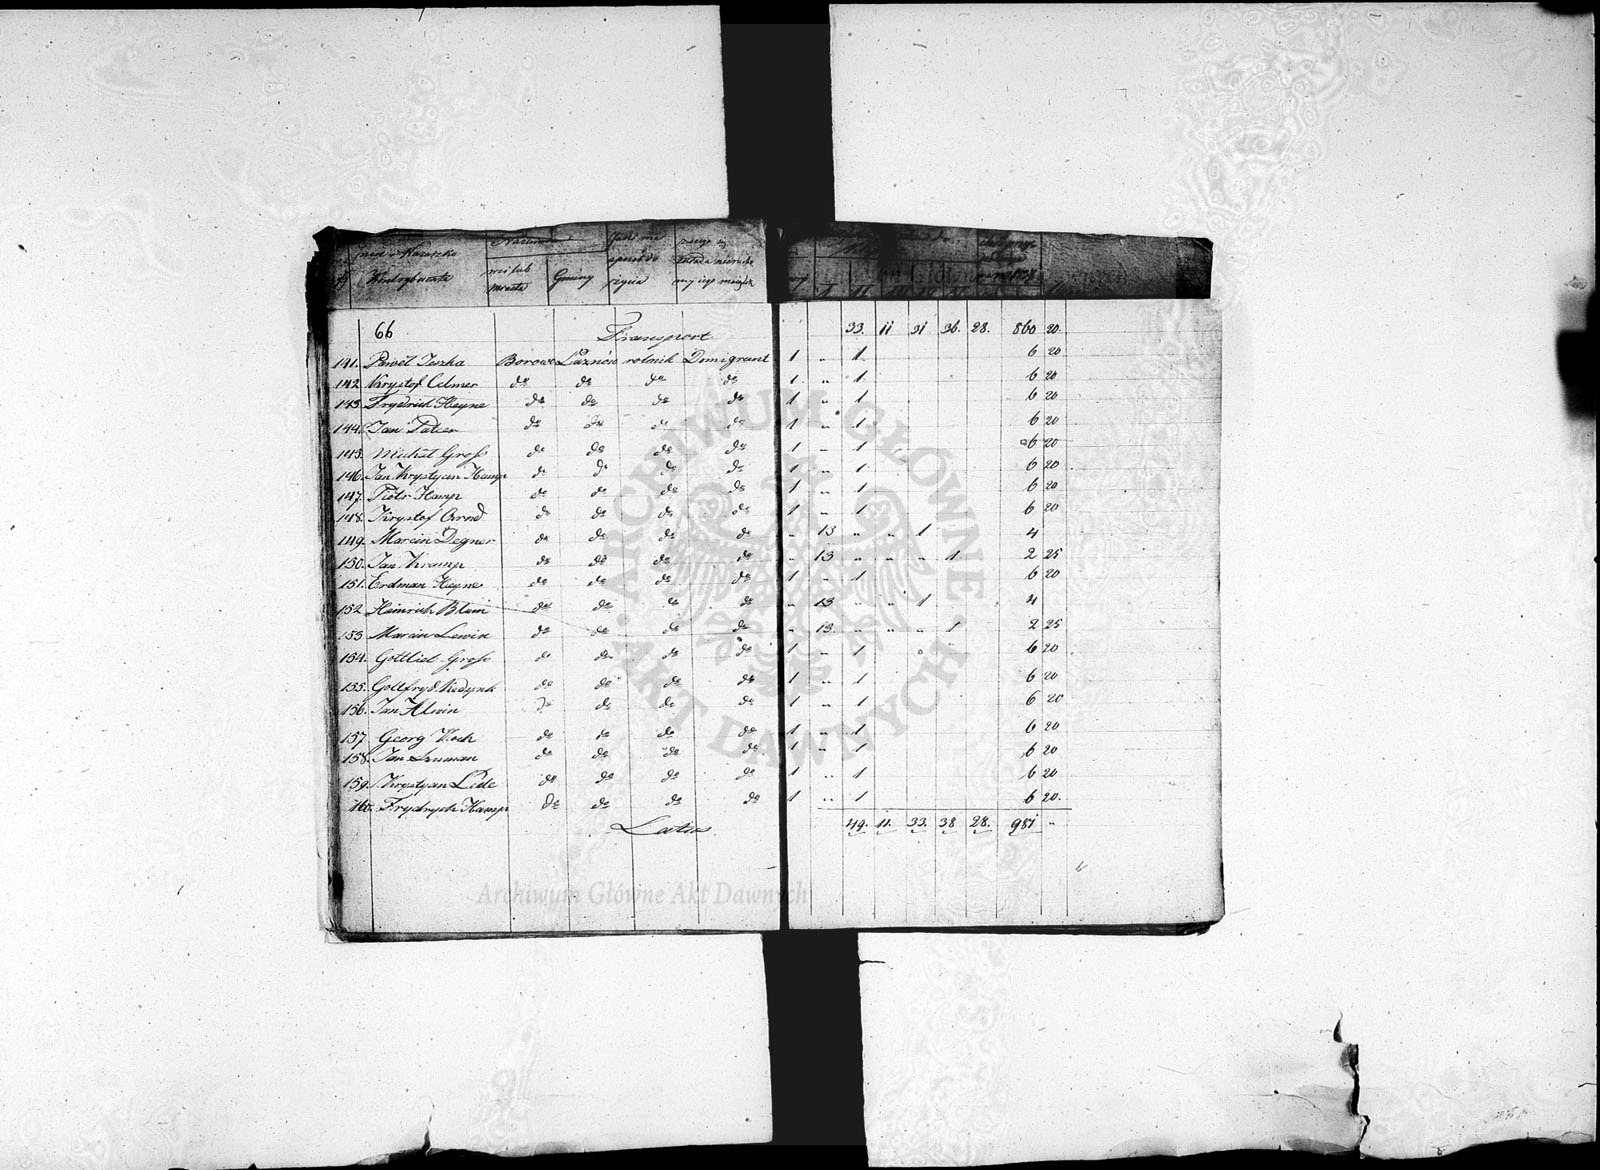 Imie i Nazwisko
Kontrybuenta
Nazwisko
wsi lub
miasta
Gminy
sposób do
życia
66 Transport 33. 11 31 36. 28. 860 20.
141. Paweł Jeszka Borowo Łaznów rolnik Demigrant 1 „ 1 6 20
142. Krystof Celmer do do do do 1 „ 1 6 20
143. Frydrich Heyne do do do do 1 „ 1 6 20
144. Jan Patzer do do do do 1 „ 1 6 20
145. Michał Gross do do do do 1 „ 1 6 20
146. Jan Krystyan Hamp do do do do 1 „ 1 6 20
147. Piotr Hamp do do do do 1 „ 1 6 20
148. Krystof Arnd do do do do 1 „ 1 6 20
149. Marcin Degner do do do do „ 13 „ „ 1 4
150. Jan Kramp do do do do „ 13 „ „ „ 1 2 25
151. Erdman Heyne do do do do 1 „ 1 6 20
152. Heinrich Blum do do do do „ 13 „ „ 1 4
153 Marcin Lewin do do do do „ 13. „ „ „ 1 2 25
154. Gottlieb Gross do do do do 1 „ 1 6 20
155. Gottfryd Kedynk do do do do 1 „ 1 6 20
156. Jan Alwin do do do do 1 „ 1 6 20
157. Georg Koch do do do do 1 „ 1 6 20
158. Jan Lauman do do do do 1 „ 1 6 20
159. Krystyan Lede do do do do 1 „ 1 6 20
160. Frydrych Hamp do do do do 1 „ 1 6 20.
Latus 49. 11. 33. 38 28. 981 „
ARCHIWUM GŁÓWNE AKT DAWNYCH
Archiwum Główne Akt Dawnych